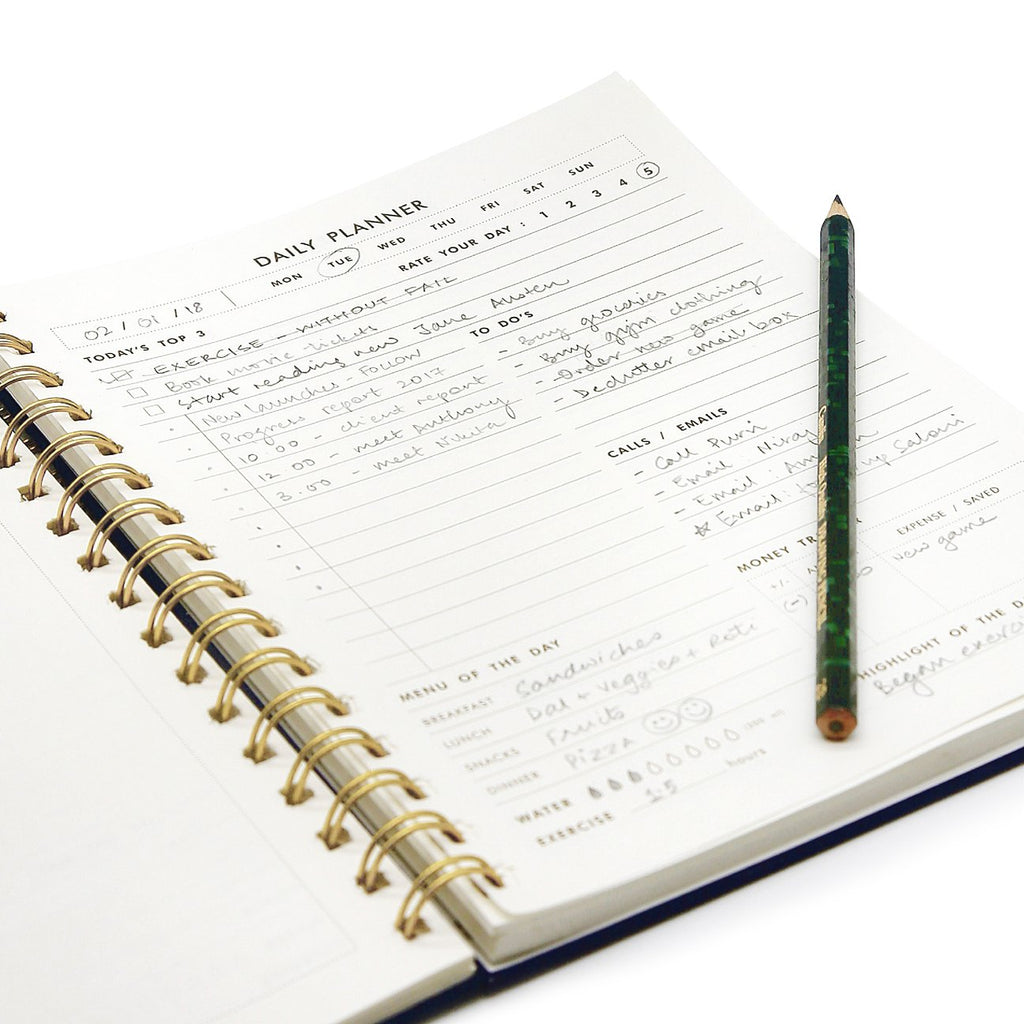 DAILY PLANNER
02 / 01 / 18
MON TUE WED THU FRI SAT SUN
RATE YOUR DAY : 1 2 3 4 5
TODAY'S TOP 3
EXERCISE - WITHOUT FAIL
Book movie tickets
Start reading new Jane Austen
New launches - Follow
Progress report 2017
10.00 - client report
12.00 - meet Anthony
3.00 - meet Nikita
TO DO'S
- Buy groceries
- Buy gym clothing
- Order new game
- Declutter email box
CALLS / EMAILS
- Call Purvi
- Email: Niraj
- Email:
Email: up Saloni
MONEY
EXPENSE / SAVED
+/-
(-) New game
MENU OF THE DAY
BREAKFAST Sandwiches
LUNCH Dal + veggies + Roti
SNACKS Fruits
DINNER PIZZA
WATER
EXERCISE 1.5 hours
HIGHLIGHT OF THE
Began